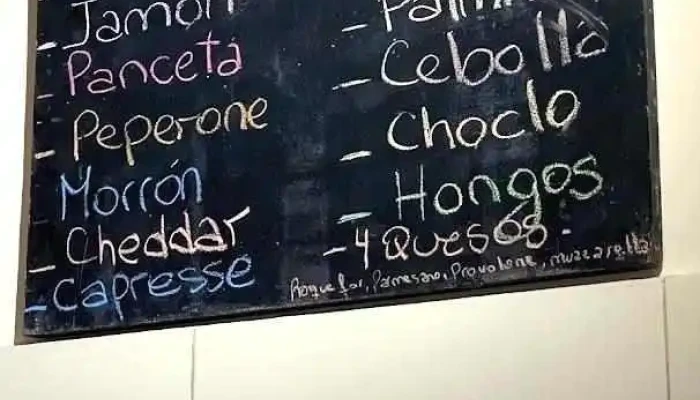 - Jamón
- Panceta
- Peperone
- Morrón
- Cheddar
- Capresse
- Cebolla
- Choclo
- Hongos
- 4 Quesos
Roquefor, Parmesano, Provolone, muzzarella